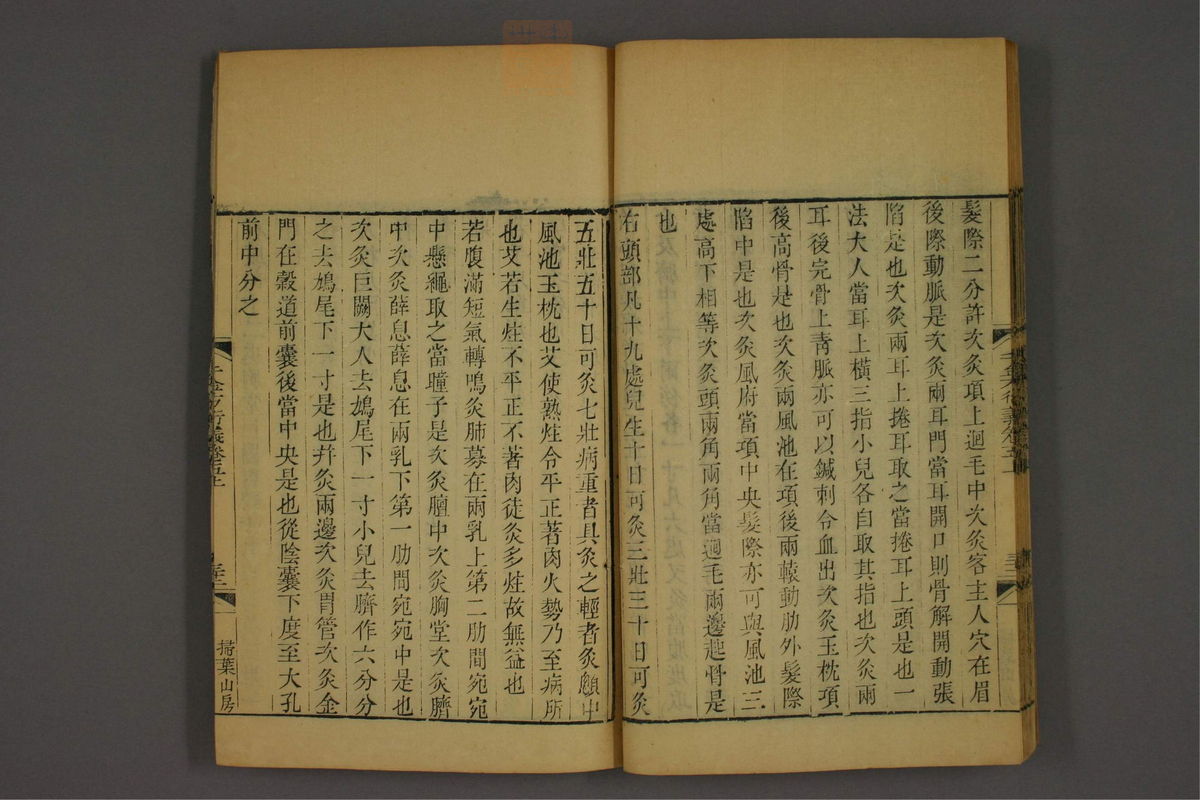 髮際二分許次灸項上迴毛中次灸客主人穴在眉
後際動脈是次灸兩耳門當耳開口則骨解開動張
陷是也次灸兩耳上捲耳取之當捲耳上頭是也一
法大人當耳上橫三指小兒各自取其指也次灸兩
耳後完骨上靑脈亦可以鍼刺令血出次灸玉枕項
後高骨是也次灸兩風池在項後兩轅動肋外髮際
陷中是也次灸風府當項中央髮際亦可與風池三
處高下相等次灸頭兩角兩角當迴毛兩邊起骨是
也
右頭部凡十九處兒生十日可灸三壯三十日可灸
五壯五十日可灸七壯病重者具灸之輕者灸顖中
風池玉枕也艾使熟炷令平正著肉火勢乃至病所
也艾若生炷不平正不著肉徒灸多炷故無益也
若腹滿短氣轉鳴灸肺募在兩乳上第二肋間宛宛
中懸繩取之當瞳子是次灸膻中次灸胸堂次灸臍
中次灸薛息薛息在兩乳下第一肋間宛宛中是也
次灸巨闕大人去鳩尾下一寸小兒去臍作六分分
之去鳩尾下一寸是也幷灸兩邊次灸胃管次灸金
門在穀道前囊後當中央是也從陰囊下度至大孔
前中分之
千金方衍義卷五上
三十二
掃葉山房